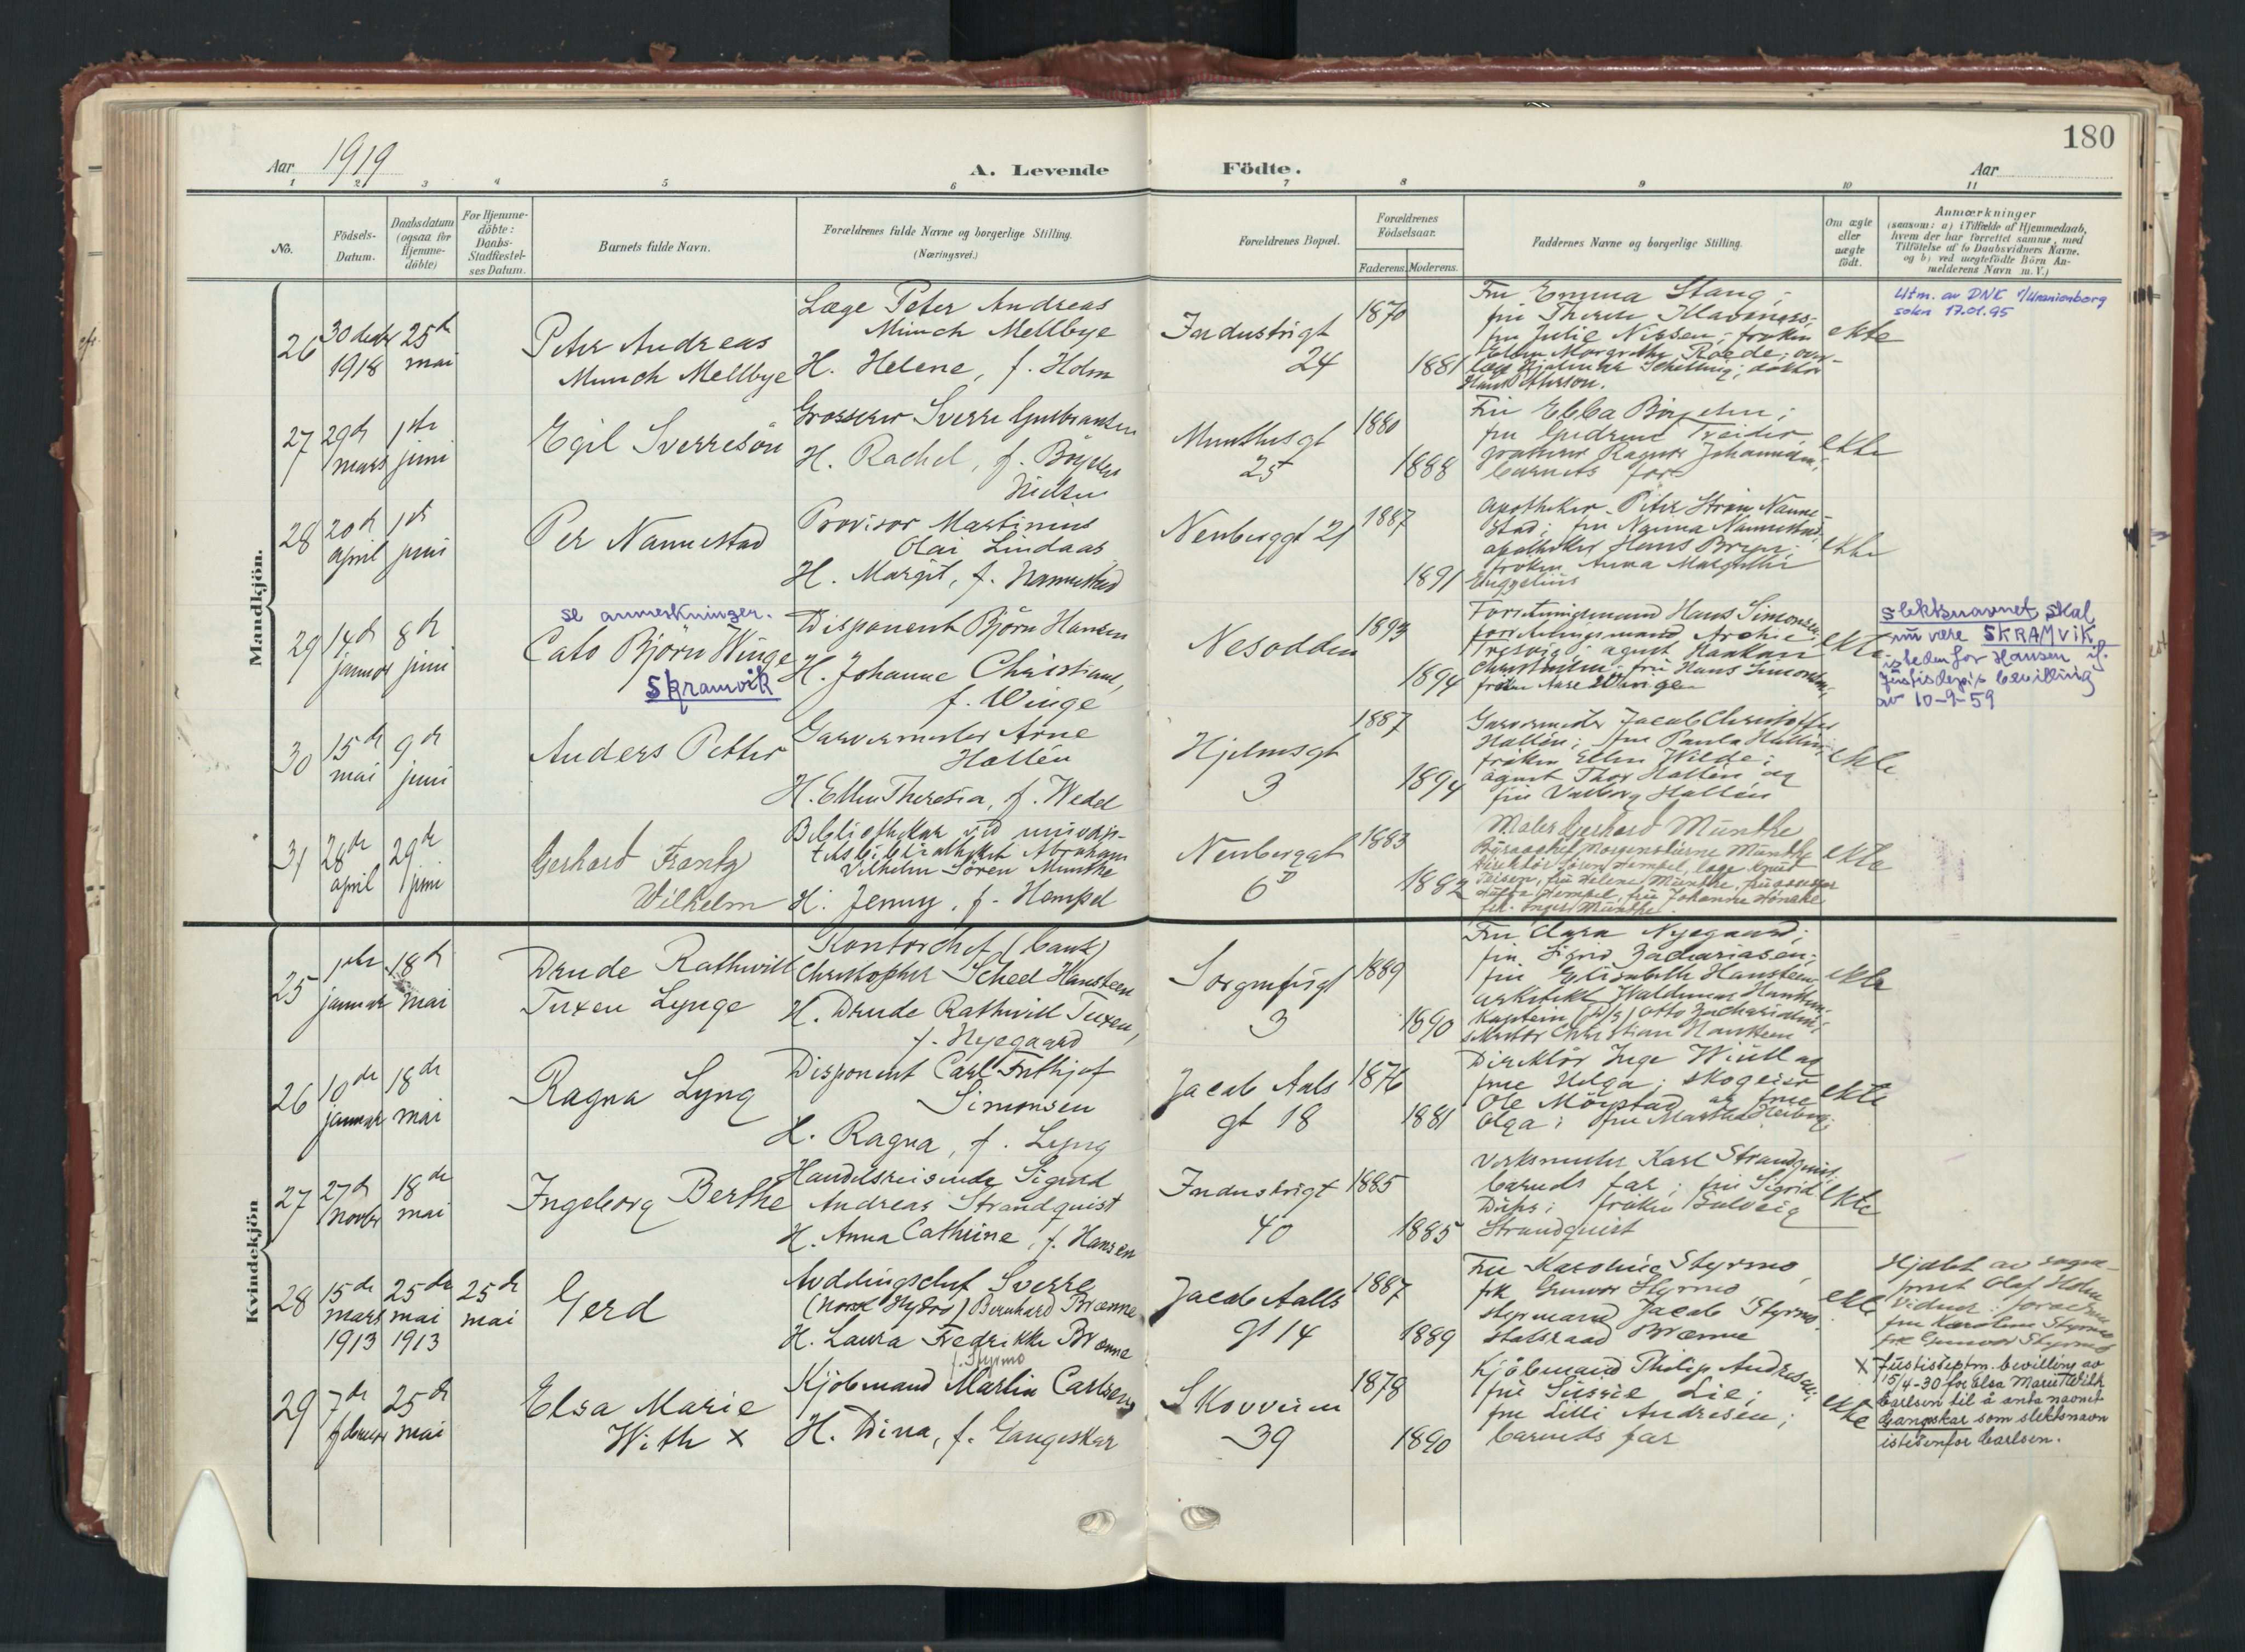 180
Aar 1919
A. Levende Födte.
Aar
1 2 3 4 5 6 7 8 9 10 11
No.
Födsels-
Datum.
Daabsdatum
(ogsaa for
Hjemme-
döbte)
For Hjemme-
döbte:
Daabs-
Stadfæstel-
ses Datum.
Barnets fulde Navn.
Forældrenes fulde Navne og borgerlige Stilling.
(Næringsvei.)
Forældrenes Bopæl.
Forældrenes
Födselsaar.
Faderens. Moderens.
Faddernes Navne og borgerlige Stilling.
Om ægte
eller
uægte
födt.
Anmærkninger
(saasom: a) i Tilfælde af Hjemmedaab,
hvem der har forrettet samme, med
Tilföielse af to Daabsvidners Navne.
og b) ved uægtefödte Börn An-
melderens Navn m. V.)
Mandkjön.
26
30 decbr
1918
25de
mai
Peter Andreas
Munch Mellbye
Læge Peter Andreas
Munch Mellbye
H. Helene, f. Holm
Industrigt
24
1870
1881
Fru Emma Stang;
fru Therese Klaveness;
fru Julie Nissen; frøken
Ellen Margrethe Roede; over-
læge Hjalmar Schilling; doktor
ekte
Utm. av DNK v/Uranienborg
sokn 17.01.95
27
29de
mars
1ste
juni
Egil Sverresøn
Grosserer Sverre Gulbransen
H. Rachel, f.
Nielsen
Munthesgt
25
1880
1888
Fru Ebba
fru Gudrun
grosserer Ragnar Johannesen;
barnets far
ekte
28
20de
april
1ste
juni
Per Nannestad
Provisor Martinius
Olai Lindaas
H. Margit, f. Nannestad
Neuberggt 21
1887
1891
Apotheker Peter Strøm Nanne-
stad; fru Nanna Nannestad;
apotheker Hans Bryn;
frøken Anna Margrethe
ekte
29
14de
januar
8de
juni
se anmerkninger.
Cato Bjørn Winge
Skramvik
Disponent Bjørn Hansen
H. Johanne Christiane,
f. Winge
Nesodden
1893
1894
Forretningsmand Hans Simonsen;
forretningsmand Archie
Tresvig; agent Haakon
Christensen; fru Hans Simonsen;
frøken Aase Winge
ekte
slektsnavnet skal
nu være SKRAMVIK
isteden for Hansen if.
Justisdep.s bevilling
av 10-9-59
30
15de
mai
9de
juni
Anders Petter
Garvermester Arne
Hallén
H. Ellen Theresia, f. Wedel
Hjelmsgt
3
1887
1894
Garvermester Jacob Christoffer
Hallén; fru Paula Hallén;
frøken Ellen Wilde;
agent Thor Hallén og
fru Valborg Hallén
ekte
31
28de
april
29de
juni
Gerhard Frantz
Wilhelm
Bibliothekar ved universi-
tetsbibliotheket Abraham
Vilhelm Søren Munthe
H. Jenny, f. Hempel
Neuberggt
6D
1883
1882
Maler Gerhard Munthe
Morgenstierne Munthe
direktør Søren Hempel, læge Knut
fru Helene Munthe, fru assessor
Hempel, fru Johanne
frk. Inger Munthe.
ekte
Kvindekjön
25
1ste
januar
18de
mai
Drude Rathwill
Tuxen Lynge
Kontorchef (bank)
Christopher Scheel Hansteen
H. Drude Rathwill Tuxen,
f. Nyegaard
Sorgenfrigt
3
1889
1890
Fru Clara Nyegaard;
fru Sigrid Zachariasen;
fru Elisabeth Hansteen;
arkitekt Waldemar Hansteen;
kaptein Otto Zachariasen;
Christian Hansteen
ekte
26
10de
januar
18de
mai
Ragna Lyng
Disponent Carl Frithjof
Simonsen
H. Ragna, f. Lyng
Jacob Aals
gt 18
1876
1881
Direktør Inge Wiull og
frue Helga; skogeier
Ole Mørstad og frue
Olga; fru Martha Heiberg;
ekte
27
27de
novbr
18de
mai
Ingeborg Berthe
Handelsreisende Sigurd
Andreas Strandquist
H. Anna Cathrine, f. Hansen
Industrigt
40
1885
1885
Verksmester Karl Strandquist;
barnets far; fru Sigrid
frøken Solveig
Strandquist
ekte
28
15de
mars
1913
25de
mai
1913
25de
mai
Gerd
Avdelingschef Sverre
(Norsk Hydro) Bernhard Brænne
H. Laura Fredrikke Brænne
f. Styrmo
Jacob Aalls
gt 14
1887
1889
Fru Karoline Styrmo,
frk Gunvor Styrmo
styrmand Jacob Styrmo.
Statsraad Brænne
ekte
Hjdøbt av sogne-
prest Olaf Holm
vidner: forældrene
fru Karoline Styrmo
frk Gunvor Styrmo
29
7de
februar
25de
mai
Elsa Marie
With x
Kjøbmand Martin Carlsen,
H. Dina, f. Gangeskar
Skovveien
39
1878
1890
Kjøbmand Philip Andresen;
fru Sussie Lie;
fru Lilli Andresen;
barnets far
ekte
x Justisdeptm. bevilling av
15/4-30 for Elsa Marie With
Carlsen til å anta navnet
Gangeskar som slektsnavn
istedenfor Carlsen.